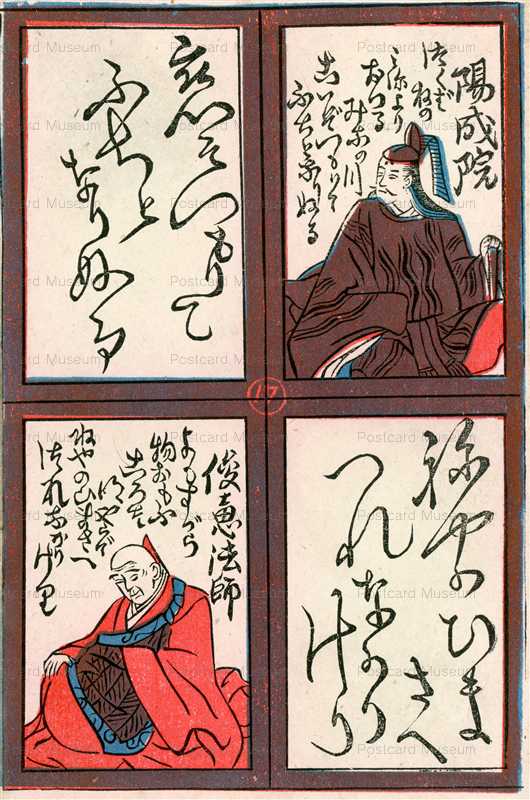 陽成院
つくばねの
みねより
おつる
みなの川
こひぞつもりて
ふちとなりぬる
恋そつもりて
ふちと
なりぬる
17
ねやのひま
さへ
つれ
なかり
けり
俊恵法師
よもすがら
物おもふ
ころは
明やらで
ねやのひまさへ
つれなかり
けり
Postcard Museum